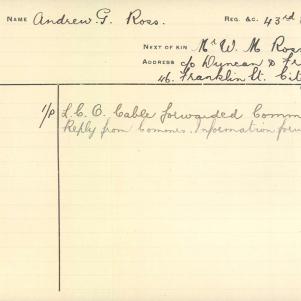 NAME Andrew. G. Ross. REG. &C. 43rd
NEXT OF KIN Mr W. M. Ross
ADDRESS c/o Duncan & Fr
46. Franklin St. Cit
1/P L. C. O. Cable forwarded Comm
Reply from Commrs. Information forw